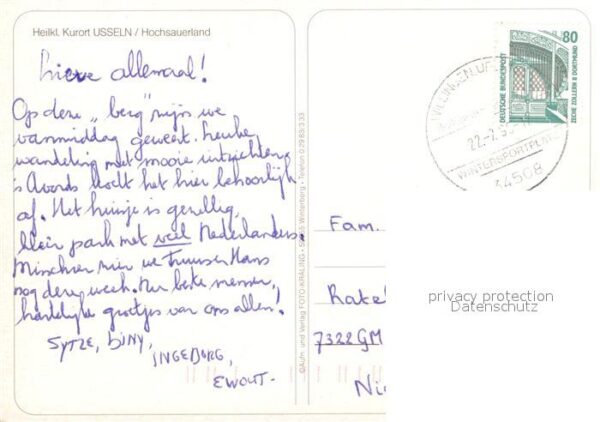 Heilkl. Kurort USSELN / Hochsauerland
Lieve allemaal!
Op deze "berg" zijn we
vanmiddag geweest. Leuke
wandeling met mooie uitzichten.
's Avonds koelt het hier behoorlijk
af. Het huisje is gezellig,
klein park met veel Nederlanders.
Misschien zien we Truus en Hans
nog deze week. Nu beste mensen,
hartelijke groetjes van ons allen!
SYTZE, DINY,
INGEBORG,
EWOUT.
©Aufn. und Verlag FOTO-KRÄLING · Winterberg · Telefon 0 29 83/3 33
80
DEUTSCHE BUNDESPOST
ZECHE ZOLLERN II DORTMUND
WILLINGEN, UP
WINTERSPORTPLATZ
34508
Fam.
Ratel
7322 GM
privacy protection
Datenschutz